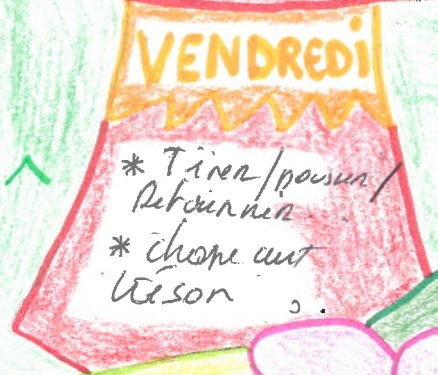 VENDREDI
* Tirer/pousser/
Retourner
* chope aut
trésor